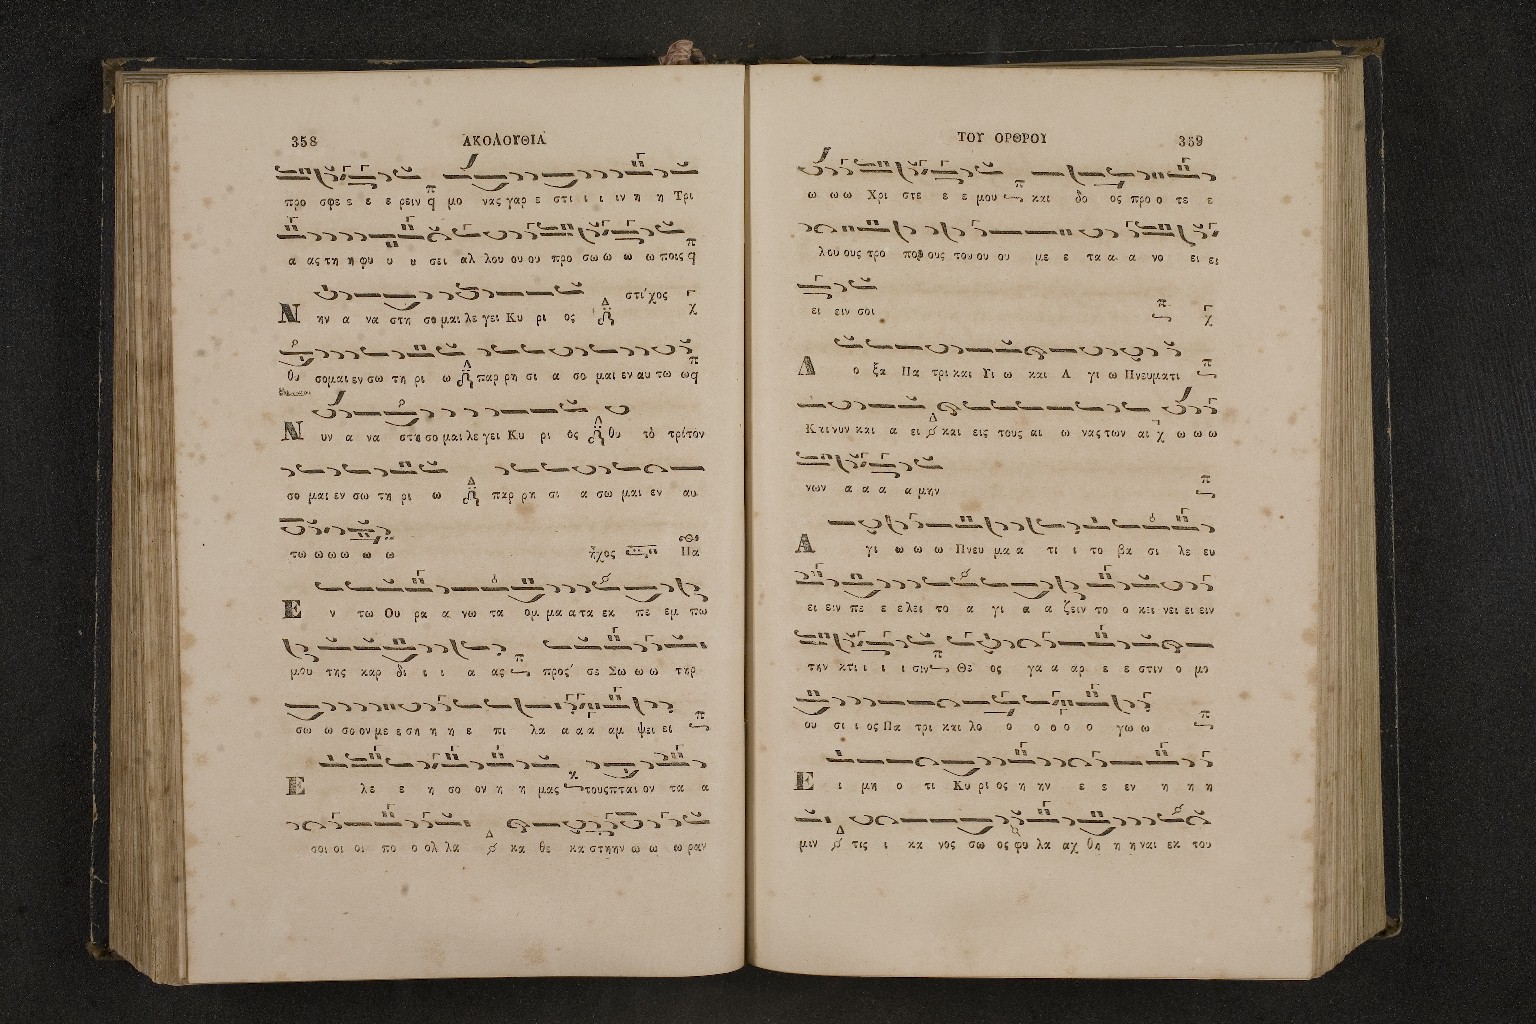 358 ΑΚΟΛΟΥΘΙΑ
προ σφε ε ε ε ρειν μο νας γαρ ε στι ι ι ιν η η Τρι
α ας τη η φυ υ υ σει αλ λου ου ου προ σω ω ω ω ποις
στίχος
Ν ην α να στη σο μαι λε γει Κυ ρι ος
θυ σομαι εν σω τη ρι ω παρ ρη σι α σο μαι εν αυ τω ω
Ν υν α να στη σο μαι λε γει Κυ ρι ος θυ τὸ τρίτον
σο μαι εν σω τη ρι ω παρ ρη σι α σω μαι εν αυ
τω ω ω ω ω ω ἦχος Πα
Ε ν τω Ου ρα α νω τα ομ μα α τα εκ πε εμ πω
μου της καρ δι ι ι α ας προς σε Σω ω ω τηρ
σω ω σο ον με ε ση η η ε πι λα α α α αμ ψει ει
Ε λε ε η σο ον η η μας τους πται ον τα α
σοι οι οι πο ο ολ λα κα θε κα στη ην ω ω ω ραν
ΤΟΥ ΟΡΘΡΟΥ 359
ω ω ω Χρι στε ε ε μου και δο ος προ ο τε ε
λου ους τρο που ους του ου ου με ε τα α α νο ει ει
ει ειν σοι
Δ ο ξα Πα τρι και Υι ω και Α γι ω Πνευματι
Κ αι νυν και α ει και εις τους αι ω νας των αι ω ω ω
νων α α α α μην
Α γι ω ω ω Πνευ μα α τι ι το βα σι λε ευ
ει ειν πε ε ε λει το α γι α α ζειν το ο κει νει ει ειν
την κτι ι ι ι σιν Θε ος γα α αρ ε ε στιν ο μο
ου σι ι ος Πα τρι και λο ο ο ο ο ο γω ω
Ε ι μη ο τι Κυ ρι ος η ην ε ε εν η η η
μιν τις ι κα νος σω ος φυ λα αχ θη η η ναι εκ του